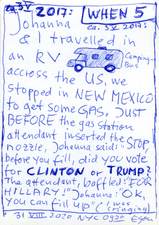 ca. 3 Y 2017: WHEN 5
Johanna ca. 3 Y 2017:
& I travelled in
an RV Camping-Bus
accross the US, we
stopped in NEW MEXICO
to get some GAS. Just
BEFORE the gas station
attendant inserted the
nozzle, Johanna said: "STOP,
before you fill, did you vote
for CLINTON or TRUMP?"
The attendant, baffled: "FOR
HILLARY!" Johanna: "O.K.,
you can fill up" (I was cringing)
31 VIII 2020 NYC 0930